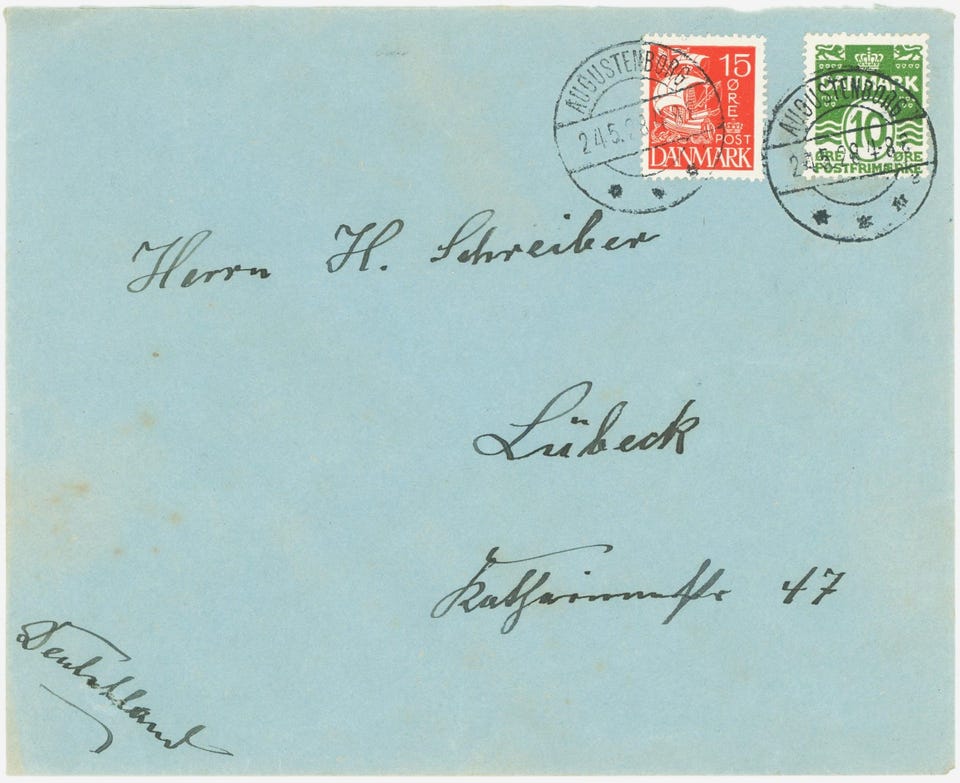 15
ØRE
POST
DANMARK
DANMARK
10
ØRE ØRE
POSTFRIMÆRKE
AUGUSTENBORG
24.5.28
AUGUSTENBORG
24.5.28
Herrn H. Schreiber
Lübeck
47
Deutschland